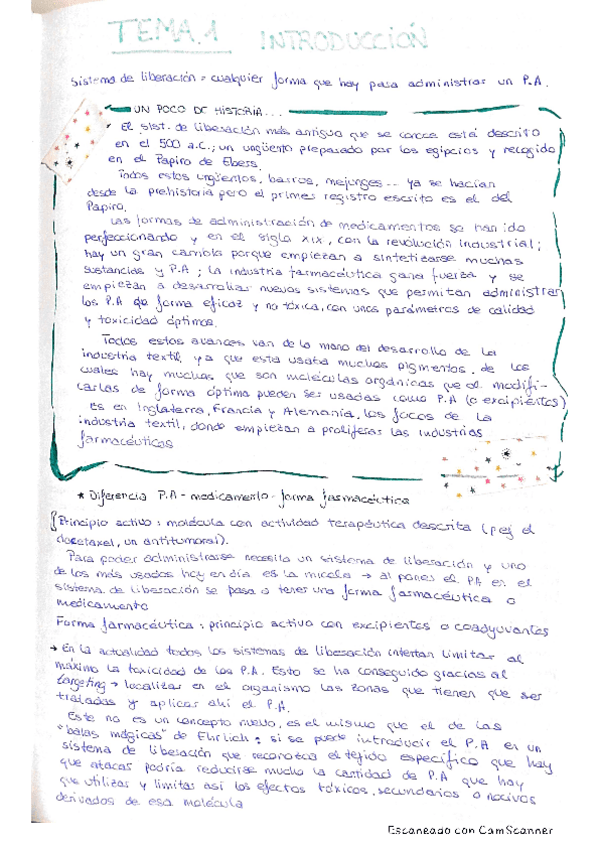 TEMA.1 INTRODUCCIÓN
Sistema de liberación = cualquier forma que hay para administrar un P.A.
UN POCO DE HISTORIA...
El sist. de liberación más antiguo que se conoce está descrito
en el 500 a.C.; un ungüento preparado por los egipcios y recogido
en el Papiro de Ebers.
Todos estos ungüentos, barros, mejunges... ya se hacían
desde la prehistoria pero el primer registro escrito es el del
Papiro.
Las formas de administración de medicamentos se han ido
perfeccionando y en el siglo XIX, con la revolución industrial;
hay un gran cambio porque empiezan a sintetizarse muchas
sustancias y P.A; la industria farmacéutica gana fuerza y se
empiezan a desarrollar nuevos sistemas que permitan administrar
los P.A de forma eficaz y no tóxica, con unos parámetros de calidad
y toxicidad óptimos.
Todos estos avances van de la mano del desarrollo de la
industria textil, ya que esta usaba muchos pigmentos, de los
cuales hay muchos que son moléculas orgánicas que al modifi-
carlas de forma óptima pueden ser usadas como P.A (o excipientes)
Es en Inglaterra, Francia y Alemania, los focos de la
industria textil, donde empiezan a proliferar las industrias
farmacéuticas
* Diferencia P.A - medicamento - forma farmacéutica
Principio activo: molécula con actividad terapéutica descrita (p.ej el
docetaxel, un antitumoral).
Para poder administrarse necesita un sistema de liberación y uno
de los más usados hoy en día es la micela → al poner el P.A en el
sistema de liberación se pasa a tener una forma farmacéutica o
medicamento
Forma farmacéutica: principio activo con excipientes o coadyuvantes
→ En la actualidad todos los sistemas de liberación intentan limitar al
máximo la toxicidad de los P.A. Esto se ha conseguido gracias al
targeting → localizar en el organismo las zonas que tienen que ser
tratadas y aplicar ahí el P.A.
Este no es un concepto nuevo, es el mismo que el de las
"balas mágicas" de Ehrlich: si se puede introducir el P.A en un
sistema de liberación que reconozca el tejido específico que hay
que atacar podría reducirse mucho la cantidad de P.A que hay
que utilizar y limitar así los efectos tóxicos, secundarios o nocivos
derivados de esa molécula
Escaneado con CamScanner